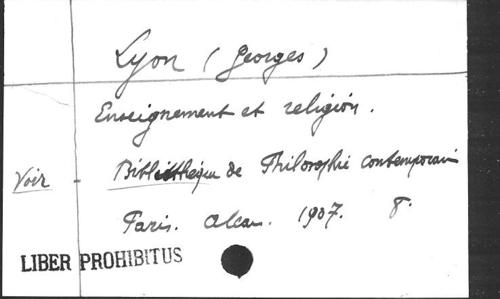 Lyon (Georges)
Enseignement et religion.
Voir - Bibliothèque de Philosophie contemporain
Paris. Alcan. 1907. 8°.
LIBER PROHIBITUS